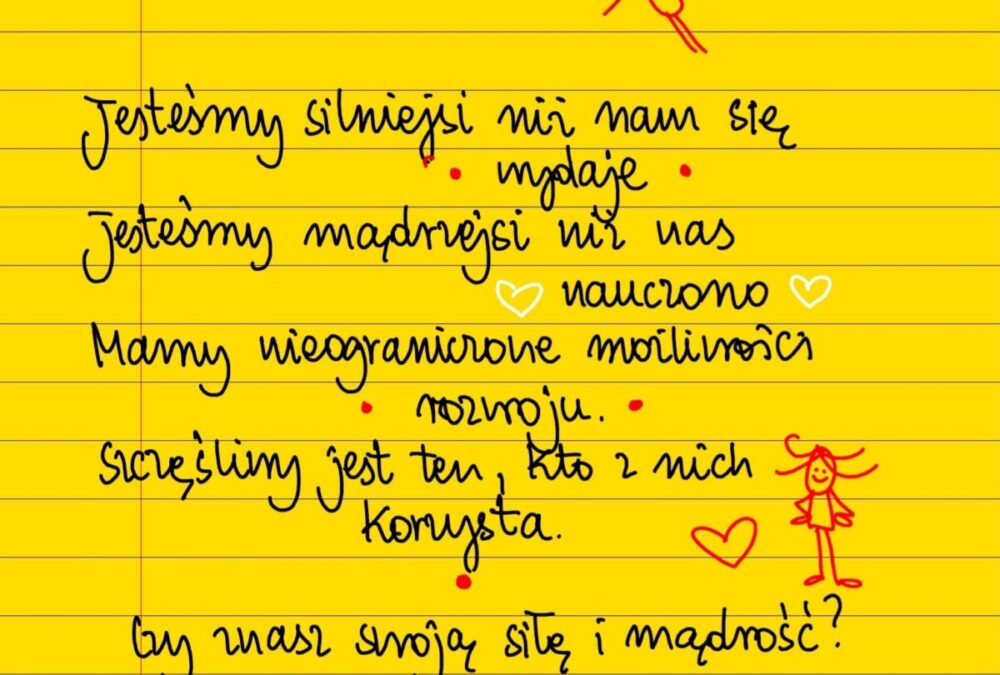 Jesteśmy silniejsi niż nam się
wydaje
Jesteśmy mądrzejsi niż nas
nauczono
Mamy nieograniczone możliwości
rozwoju.
Szczęśliwy jest ten, kto z nich
korzysta.
Czy znasz swoją siłę i mądrość?